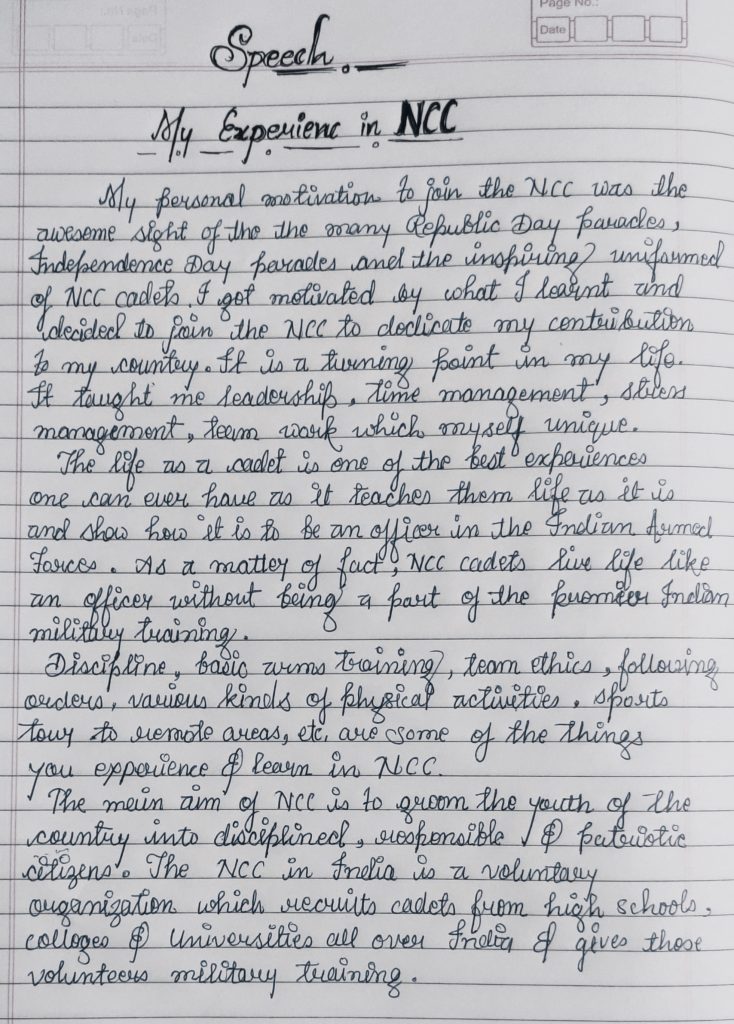 Page No.:
Date
Speech.
My Experienc in NCC
My personal motivation to join the NCC was the
awesome sight of the the many Republic Day parades,
Independence Day parades and the inspiring uniformed
of NCC cadets. I got motivated by what I learnt and
decided to join the NCC to dedicate my contribution
to my country. It is a turning point in my life.
It taught me leadership, time management, stress
management, team work which myself unique.
The life as a cadet is one of the best experiences
one can ever have as it teaches them life as it is
and show how it is to be an officer in the Indian Armed
Forces. As a matter of fact, NCC cadets live life like
an officer without being a part of the premier Indian
military training.
Discipline, basic arms training, team ethics, following
orders, various kinds of physical activities, sports
tour to remote areas, etc. are some of the things
you experience & learn in NCC.
The main aim of NCC is to groom the youth of the
country into disciplined, responsible & patriotic
citizens. The NCC in India is a voluntary
organization which recruits cadets from high schools,
colleges & Universities all over India & gives those
volunteers military training.